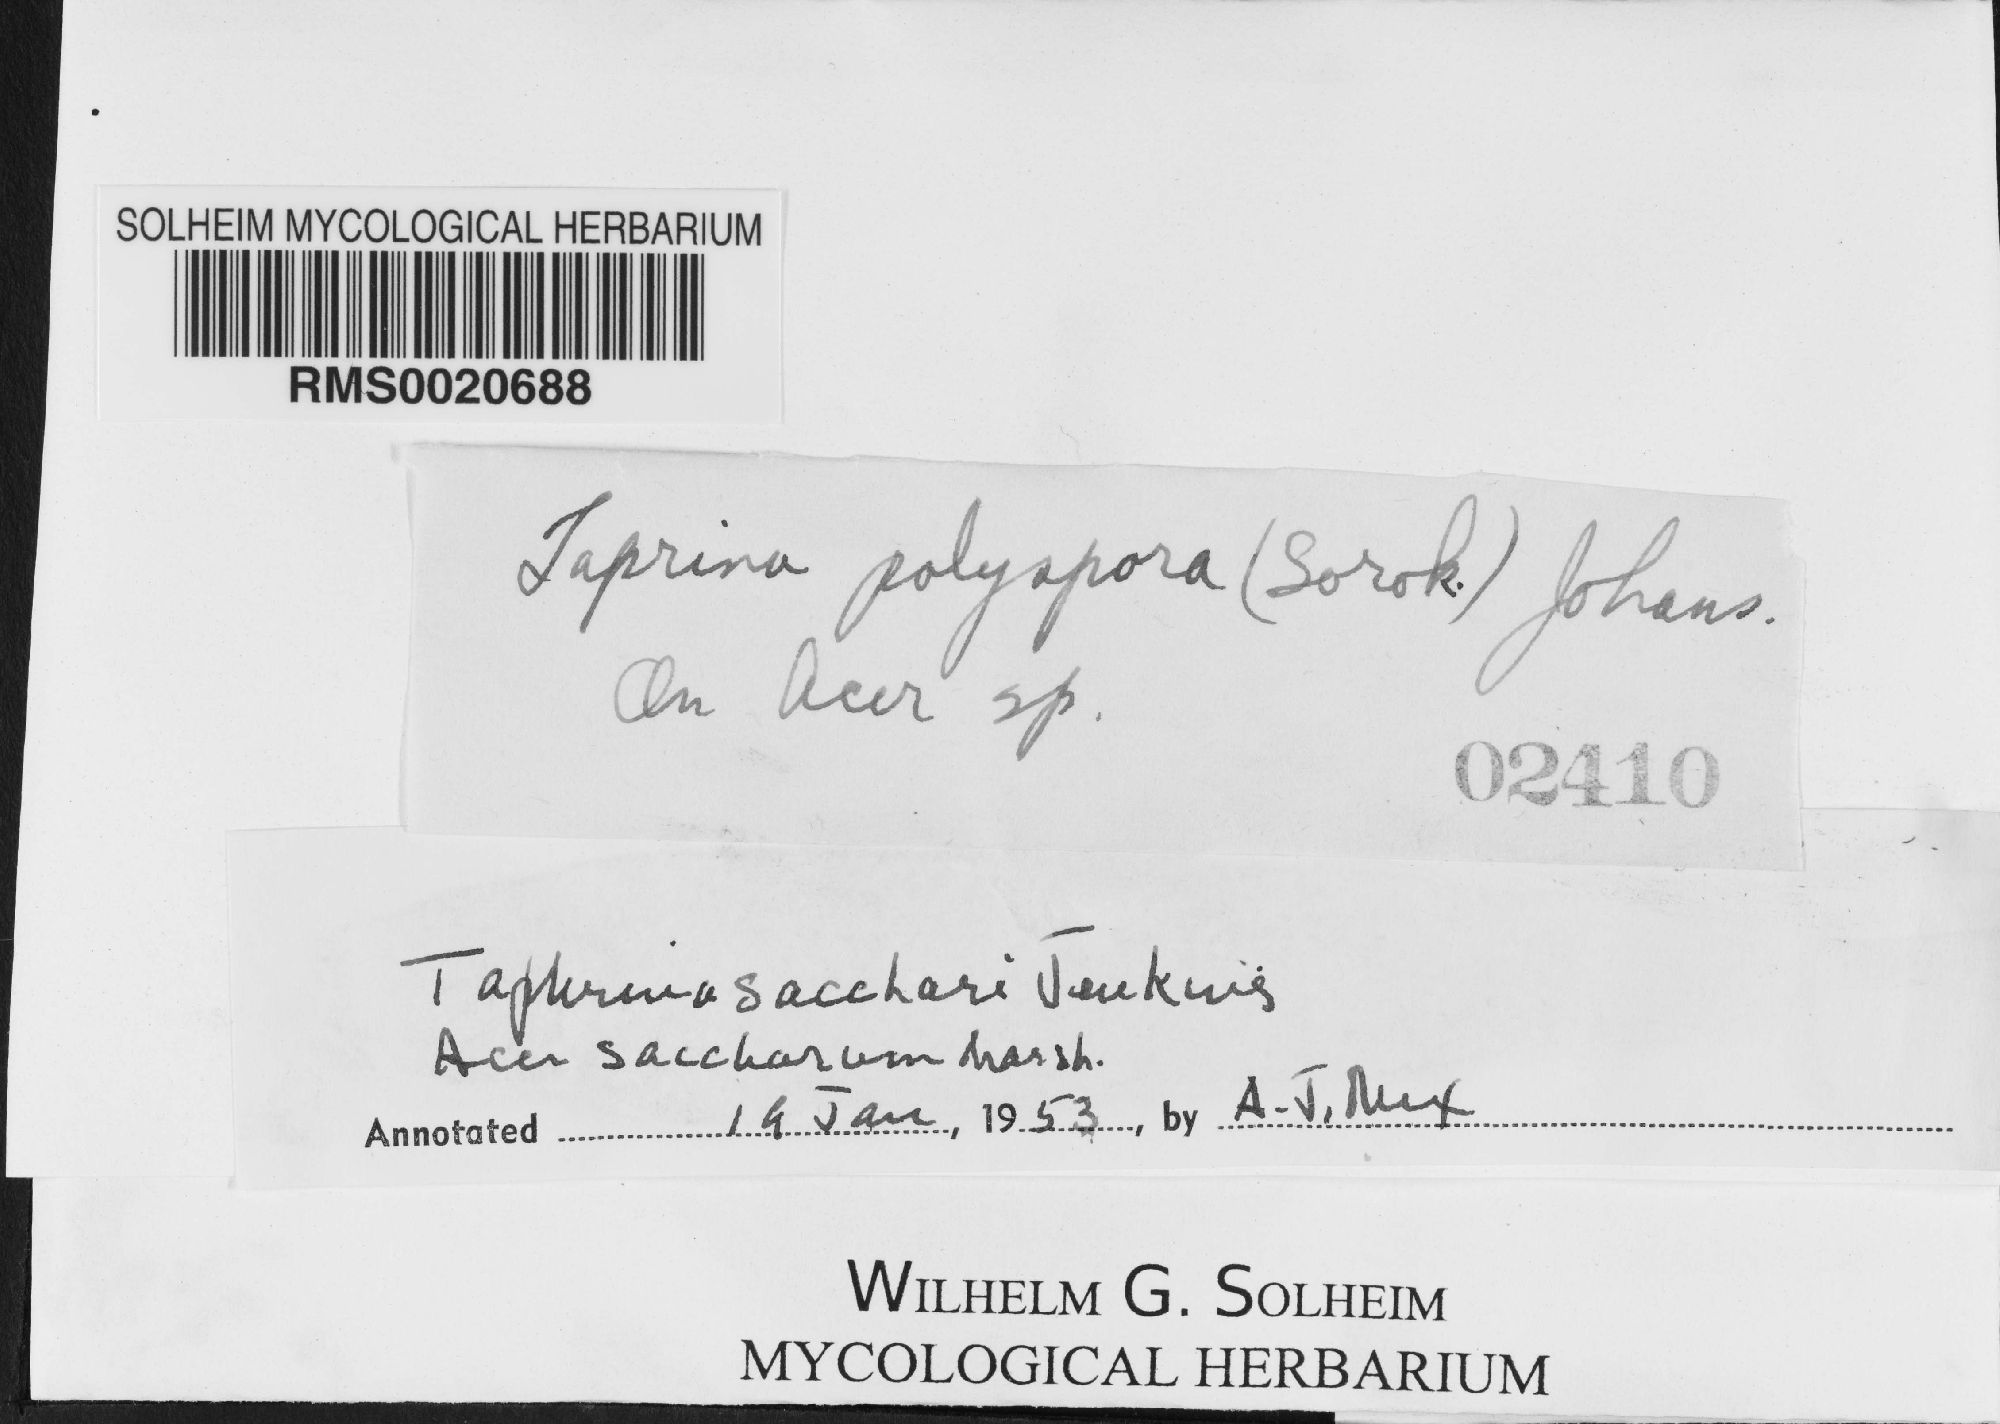 SOLHEIM MYCOLOGICAL HERBARIUM
RMS0020688
Taprina polyspora (Sorok.) Johans.
On Acer sp.
02410
Taphrina sacchari Jenkins
Acer saccharum Marsh.
Annotated 19 Jan, 1953, by A. J. Mix
WILHELM G. SOLHEIM
MYCOLOGICAL HERBARIUM